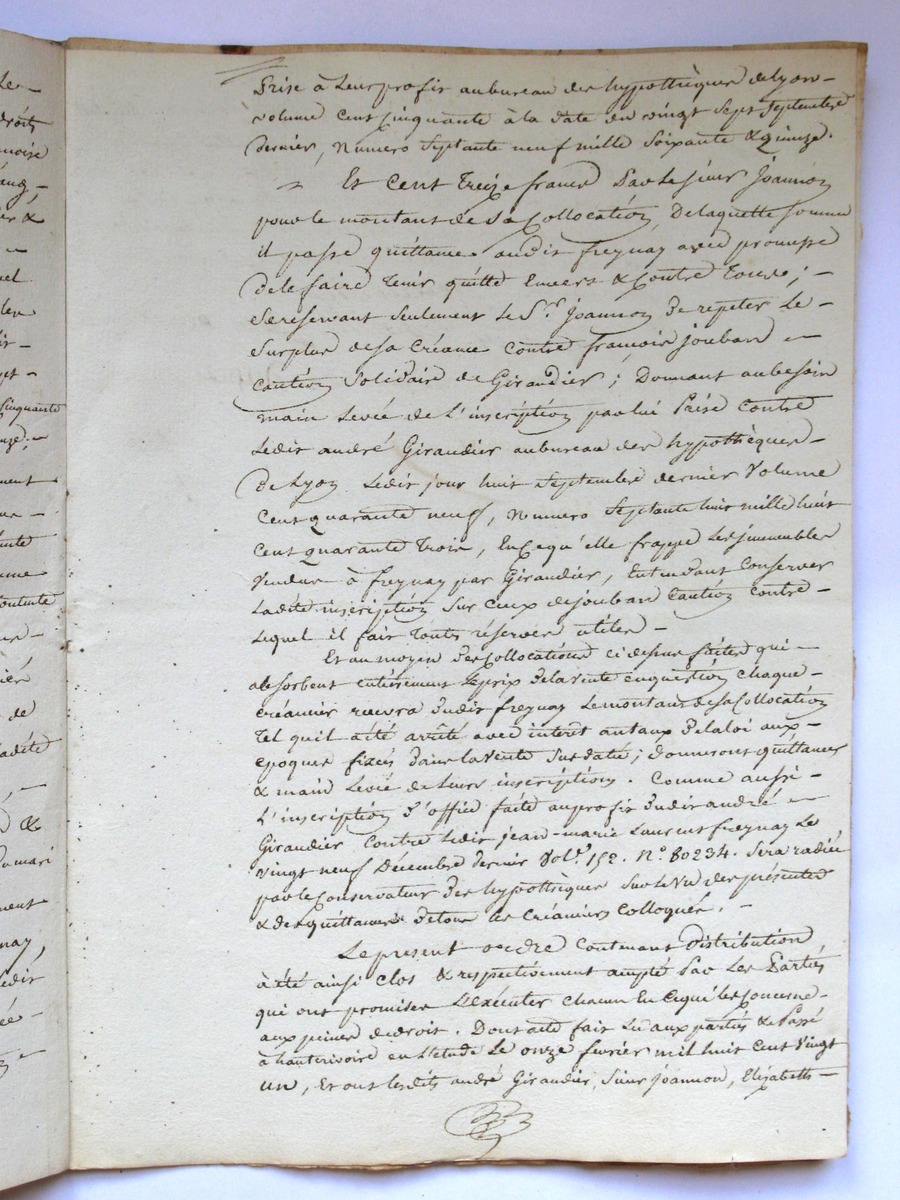 Prise à leur profit au bureau des hypothèques de lyon
volume cent cinquante à la date du vingt sept septembre
dernier, Numero septante neuf mille soixante & quinze.
Et cent treize francs par le sieur Joannon
pour le montant de sa Collocation, De laquelle somme
il passe quittance audit freynay avec promesse
de le faire tenir quitte Envers & Contre tous; –
se reservant seulement le Sr. Joannon De repeter Le –
surplus de sa Créance contre françois jouban –
Caution Solidaire de Giraudier; Donnant au besoin
main levée de L'inscription par lui Prise contre
Ledit andré Giraudier au bureau des hypothèques –
De Lyon Ledit jour huit septembre dernier Volume
Cent quarante neuf, Numero septante huit mille huit
cent quarante trois, En ce qu'elle frappe Les immeubles
Vendus à freynay par Giraudier, Entendant Conserver
Ladite inscription sur ceux de jouban Caution contre –
Lequel il fait toutes réserves utiles –
Et au moyen Des Collocations ci dessus faites qui –
absorbent entièrement Le prix De la Vente en question chaque –
créancier recevra Dudit freynay Le montant de sa Collocation
tel qu'il a été arrêté avec interêt au taux De la loi aux –
epoques fixées Dans la Vente sus datée; donneront quittances
& main Levée de Leurs inscriptions. Comme aussi –
L'inscription D'office faite au profit Dudit andré –
Giraudier Contre Ledit jean-marie Laurent freynay Le
vingt neuf Décembre dernier Vole. 152. No. 80234. sera radiée
par le Conservateur Des hypothèques sur le Vu des présentes
& des quittances De tous les Créanciers Colloqués. –
Le present ordre Contenant Distribution
à été ainsi clos & respectivement accepté Par Les Parties
qui ont promis L'exécuter chacun En ce qui les concerne –
aux peines de droit. Dont acte fait Lu aux parties & Passé
à hauterivoire en L'etude Le onze fevrier mil huit cent vingt
un, Et ont lesdits andré Giraudier, Sieur Joannon, Elizabeth –